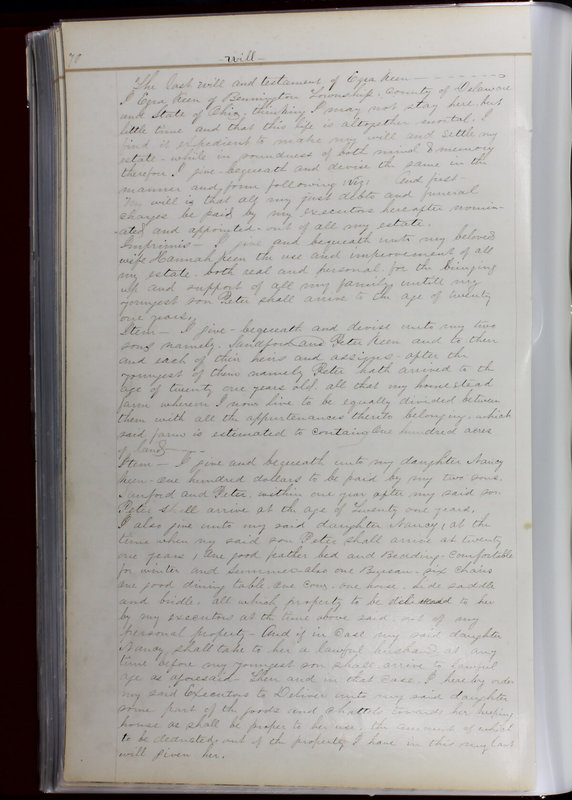 78
- Will -
The last will and testament of Ezra Keen
I Ezra Keen of Bennington Township. County of Delaware
and State of Ohio, thinking I may not stay here but
little time and that this life is altogether mortal. I
find it expedient to make my will and settle my
estate - while in soundness of both mind & memory
therefore I give - bequeath and devise the same in the
manner and form following Viz: And first -
My will is that all my just debts and funeral
charges be paid by my executors hereafter nomin-
ated and appointed - out of all my estate.
Imprimis - I give and bequeath unto my beloved
wife Hannah Keen the use and improvement of all
my estate. both real and personal for the bringing
up and support of all my family untill my
youngest son Peter shall arrive to the age of twenty
one years,
Item - I give - bequeath and devise unto my two
sons namely. Sandford and Peter Keen and to them
and each of their heirs and assigns - after the
youngest of them namely Peter hath arrived to th
age of twenty one years old. all that my homestead
farm wherein I now live to be equally divided between
them with all the appurtenances thereto belonging. which
said farm is estimated to contain One hundred acres
of land
Item - I give and bequeath unto my daughter Nancy
Keen - one hundred dollars to be paid by my two sons.
Sanford and Peter. within one year after my said son
Peter shall arrive at the age of Twenty one years,
I also give unto my said daughter Nancy, at the
time when my said son Peter shall arrive at twenty
one years, One good feather bed and Bedding - Comfortable
for winter and summer - also one Bureau. six chairs
one good dining table. one Cow. one horse. Side saddle
and bridle. all which property to be delivered to her
by my executors at the time above said, out of my
personal property - And if in Case my said daughter
Nancy shall take to her a lawful husband at any
time before my youngest son shall arrive to lawful
age as aforesaid - Then and in that Case. I hereby order
my said Executors to Deliver unto my said daughter
some part of the goods and chattels towards her keeping
house as shall be proper to her use, the amount of which
to be deducted out of th property I have in this my last
will given her.